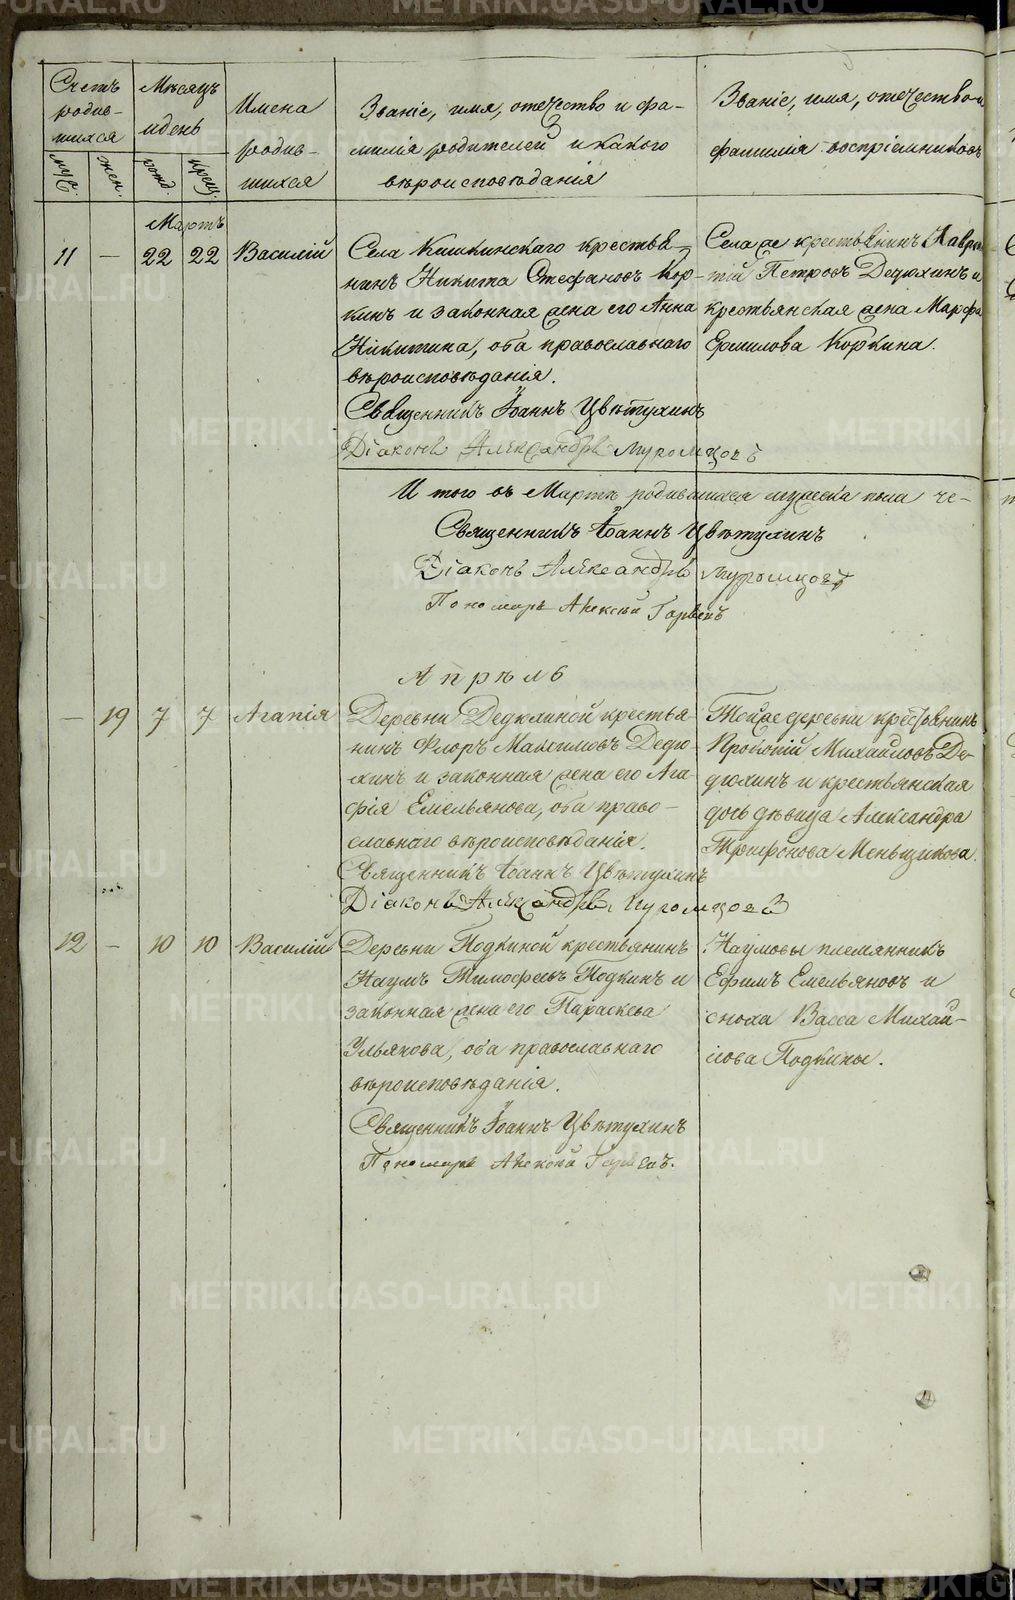 Счетъ родив-
шихся
муж.
жен.
Мѣсяцъ
и день
рожд.
крещ.
Имена
родив-
шихся
Званіе, имя, отечество и фа-
милія родителей и какого
вѣроисповѣданія
Званіе, имя, отечество и
фамилія воспріемниковъ
Мартъ
11 — 22 22 Василій
Села Кишкинскаго крестья-
нинъ Никита Стефановъ Кор-
кинъ и законная жена его Анна
Никитина, оба православнаго
вѣроисповѣданія.
Священникъ Іоаннъ Цвѣтухинъ
Діаконъ Александръ Муромцовъ
Села же крестьянинъ Лаврен-
тій Петровъ Дедюхинъ и
крестьянская жена Марфа
Ермилова Коркина.
И того въ Мартѣ родившихся мужеска пола че-
Священникъ Іоаннъ Цвѣтухинъ
Діаконъ Александръ Муромцовъ
Пономарь Алексѣй
Апрѣль
— 19 7 7 Агапія
Деревни Дедюхиной крестья-
нинъ Флоръ Максимовъ Дедю-
хинъ и законная жена его Ага-
фія Емельянова, оба право-
славнаго вѣроисповѣданія.
Священникъ Іоаннъ Цвѣтухинъ
Діаконъ Александръ Муромцовъ
Тойже деревни крестьянинъ
Михайловъ Де-
дюхинъ и крестьянская
дочь дѣвица Александра
Трифонова Меньщикова.
12 — 10 10 Василій
Деревни Подкиной крестьянинъ
Наумъ Тимофеевъ Подкинъ и
законная жена его Параскева
Ульянова, оба православнаго
вѣроисповѣданія.
Священникъ Іоаннъ Цвѣтухинъ
Пономарь Алексѣй
Наумовы племянникъ
Ефимъ Емельяновъ и
сноха Васса Михай-
лова Подкины.
METRIKI.GASO-URAL.RU